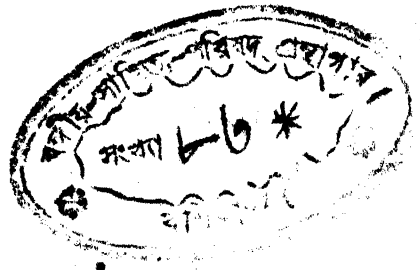 বঙ্গীয়-সাহিত্য-পরিষদ্ গ্রন্থাগার।
সংখ্যা ৮৬